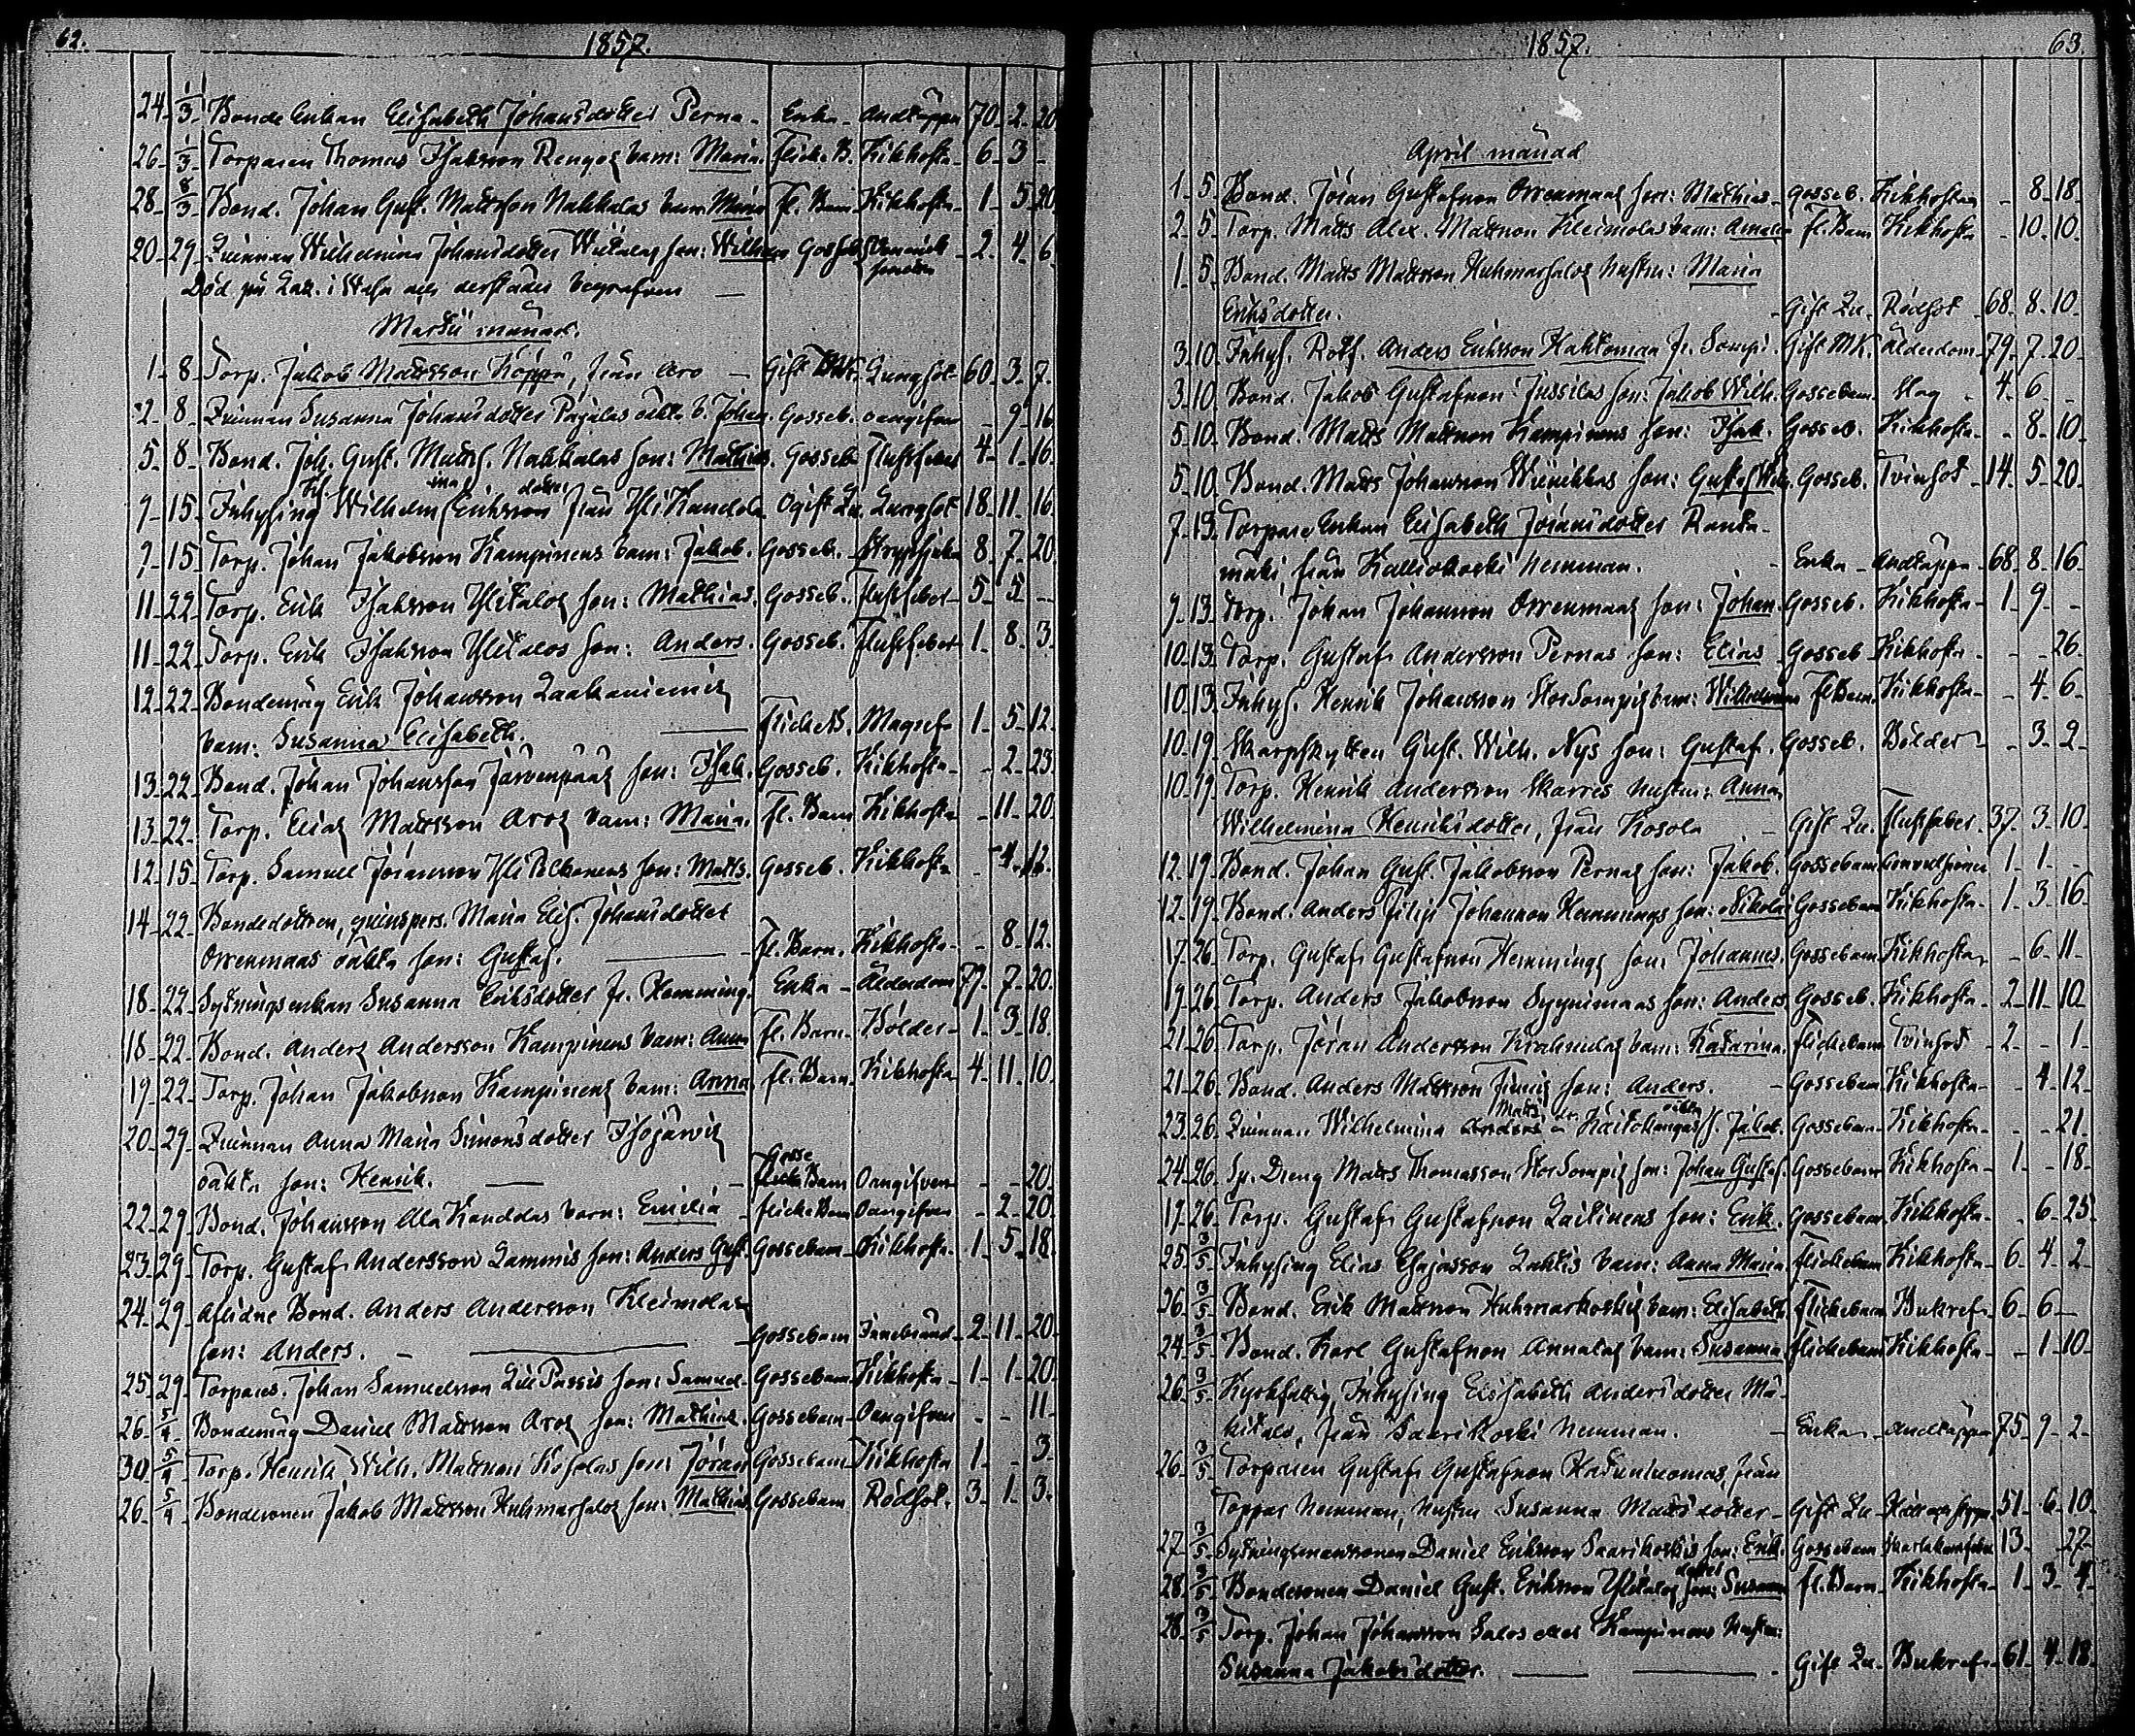 62.
1857.
24. 1/3 Bonde Enkan Elisabeth Johansdotter Perna - Enka - Andtäppa 70. 2. 20
26. 1/3 Torparen Thomas Isaksson Rengos barn: Maria. Flick. B. Kikhosta 6. 3 -
28. 8/3 Bond. Johan Gust. Mattsson Nakkalas barn Maria Fl. Barn Kikhosta 1. 5. 20.
20. 29. Quinnan Wilhelmina Johansdotter Wiitalas son: Wilhelm Gosseb. 2. 4. 6.
Död på Laz. i Wasa och derstädes begrafven
Martii månad.
1. 8. Torp. Jakob Mattsson Köppä, från Aro - Gift MK. Lungsot 60. 3. 7.
2. 8. Quinnan Susanna Johansdotter Pajalas oäkta b. Johan. Gosseb. Oangifven - 9. 16
5. 8. Bond. Joh. Gust. Matts. Nakkalas son: Mathias. Gosseb. Flussfeber 4. 1. 16.
7. 15. Inhysing Wilhelmina Eriksdotter från Yli Kandola Ogift Qu. Lungsot 18. 11. 16.
7. 15. Torp. Johan Jakobsson Kampinens barn: Jakob. Gosseb. Strypsjuka 8. 7. 20.
11. 22. Torp. Erik Isaksson Ylitalos son: Mathias. Gosseb. Flussfeber 5. 5. -
11. 22. Torp. Erik Isaksson Ylitalos son: Anders. Gosseb. Flussfeber 1. 8. 3.
12. 22. Bondemåg Erik Johansson Laakaniemis
barn: Susanna Elisabeth. Flickeb. Magref 1. 5. 12.
13. 22. Bond. Johan Johansson Järvenpääs son: Isak. Gosseb. Kikhosta - 2. 23.
13. 22. Torp. Elias Mattsson Aros barn: Maria. Fl. Barn Kikhosta - 11. 20.
12. 15. Torp. Samuel Jöransson Yli Pelkonens son: Matts. Gosseb. Kikhosta - 4. 12.
14. 22. Bondedottren, qvinspers. Maria Elis. Johansdotter
Orrenmaas oäkta son: Gustaf. Fl. Barn. Kikhosta - 8. 12.
18. 22. Sytningsenkan Susanna Eriksdotter Jr. Hemming. Enka - Ålderdom 79. 7. 20.
18. 22. Bond. Anders Andersson Kampinens barn: Anna Fl. Barn. Bölder 1. 3. 18.
19. 22. Torp. Johan Jakobsson Kampinens barn: Anna Fl. Barn. Kikhosta 4. 11. 10.
20. 29. Quinnan Anna Maria Simonsdotter Isojärvis
oäkta son: Henrik. Gosse Barn Oangifven - - 20.
22. 29. Bond. Johansson Ala Kanddas barn: Emilia Flickebarn Oangifven - 2. 20.
23. 29. Torp. Gustaf Andersson Lammis son: Anders Gust. Gossebarn Kikhosta 1. 5. 18.
24. 29. Aflidne Bond. Anders Andersson Kleimolas
son: Anders. Gossebarn 2. 11. 20.
25. 29. Torpares. Johan Samuelsson Lill Passis son: Samuel. Gossebarn Kikhosta 1. 1. 20.
26. 5/4 Bondemåg Daniel Mattsson Aros son: Mathias. Gossebarn Oangifven - - 11.
30. 5/4 Torp. Henrik Wilh. Mattsson Kosolas son: Jöran Gossebarn Kikhosta 1. - 3.
26. 5/4 Bondesonen Jakob Mattsson Huhmarsalos son: Mathias Gossebarn Rödsot. 3. 1. 3.
1857.
63.
April månad
1. 5. Bond. Jöran Gustafsson Orrenmaas son: Mathias. Gosseb. Kikhosta - 8. 18.
2. 5. Torp. Matts Alex. Mattsson Kleimolas barn: Amalia Fl. Barn Kikhosta - 10. 10.
1. 5. Bond. Matts Mattsson Huhmarsalos hustru: Maria
Eriksdotter. Gift Qu. Rödsot 68. 8. 10.
3. 10. Inhys. Rotf. Anders Eriksson Hahtoman Jr. Sompi. Gift MK. Ålderdom 79. 7. 20.
3. 10. Bond. Jakob Gustafsson Jussilas son: Jakob Wilh. Gossebarn Slag 4. 6. -
5. 10. Bond. Matts Mattsson Kampinens son: Isak. Gosseb. Kikhosta - 8. 10.
5. 10. Bond. Matts Johansson Wiinikkas son: Gustaf Wilh. Gosseb. Tvinsot 14. 5. 20.
7. 13. Torpare Enkan Elisabeth Jöransdotter Ranta-
mäki från Kalliokoski hemman. Enka - Andtäppa 68. 8. 16.
9. 13. Torp. Johan Johansson Orrenmaas son: Johan. Gosseb. Kikhosta 1. 9. -
10. 13. Torp. Gustaf Andersson Pernas son: Elias Gosseb. Kikhosta - - 26.
10. 13. Inhys. Henrik Johansson Stor Sompis barn: Wilhelmina Fl. Barn. Kikhosta - 4. 6.
10. 19. Skarpskytten Gust. Wilh. Nys son: Gustaf. Gosseb. Bölder - 3. 2.
10. 19. Torp. Henrik Andersson Skarres hustru: Anna
Wilhelmina Henriksdotter, från Kosola Gift Qu. Flussfeber 37. 3. 10.
12. 19. Bond. Johan Gust. Jakobsson Pernas son: Jakob. Gossebarn Convulsioner 1. 1. -
12. 19. Bond. Anders Filip Johansson Hemmings son: Nikolai Gossebarn Kikhosta 1. 3. 16.
17. 26. Torp. Gustaf Gustafsson Hemmings son: Johannes. Gossebarn Kikhosta - 6. 11.
17. 26. Torp. Anders Jakobsson Syynimaas son: Anders Gosseb. Kikhosta 2. 11. 10.
21. 26. Torp. Jöran Andersson Krahnulas barn: Katarina. Flickebarn Tvinsot 2. - 1.
21. 26. Bond. Anders Mattsson son: Anders. Gossebarn Kikhosta - 4. 12.
23. 26. Quinnan Wilhelmina Matts dr Käitokangas oäkta s. Jakob. Gossebarn Kikhosta - - 21.
24. 26. Sp. Dreng Matts Thomasson Stor Sompis son: Johan Gustaf. Gossebarn Kikhosta 1. - 18.
17. 26. Torp. Gustaf Gustafsson Laitinens son: Erik. Gossebarn Kikhosta - 6. 25.
25. 3/5 Inhysing Elias Esajasson Lahtis barn: Anna Maria Flickebarn Kikhosta 6. 4. 2.
26. 3/5 Bond. Erik Mattsson Huhmarkoskis barn: Elisabeth Flickebarn Bukref 6. 6. -
24. 3/5 Bond. Karl Gustafsson Annalas barn: Susanna Flickebarn Kikhosta - 1. 10.
26. 3/5 Kyrkfattig Inhysing Elisabeth Andersdotter Mä-
kitalo, från Saarikoski hemman. Enka - Andtäppa 75. 9. 2.
26. 3/5 Torparen Gustaf Gustafsson från
Toppar hemman, hustru Susanna Mattsdotter - Gift Qu. 51. 6. 10.
27. 3/5 Sytningsmanssonen Daniel Eriksson Saarikoskis son: Erik. Gossebarn Skarlakansfeber 13. 27.
28. 3/5 Bondesonen Daniel Gust. Eriksson Ylitalos dotter: Susanna Fl. Barn. Kikhosta 1. 3. 4.
28. 3/5 Torp. Johan Johansson Salos eller Kampinens hustru:
Susanna Jakobsdotter. Gift Qu. Bukref 61. 4. 18.